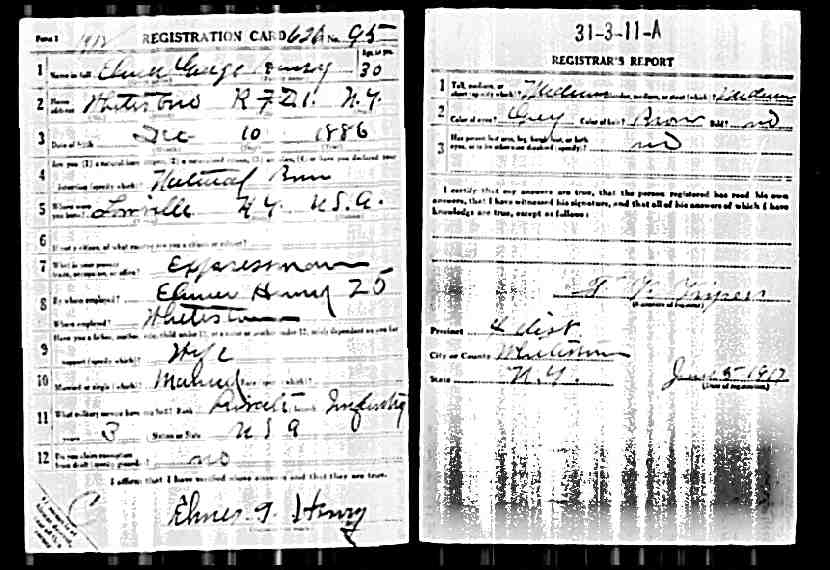 Form 1 1912 REGISTRATION CARD 620 No. 95
1 Name in full Elmer George Henry Age, in yrs. 30
2 Home address Whitestown R F D 1. N.Y.
3 Date of birth Dec 10 1886
(Month) (Day) (Year)
4 Are you (1) a natural-born citizen, (2) a naturalized citizen, (3) an alien, (4) or have you declared your
intention (specify which)? Natural Born
5 Where were you born? Lowville N.Y. U.S.A.
6 If not a citizen, of what country are you a citizen or subject?
7 What is your present trade, occupation, or office? Expressman
8 By whom employed? Elmer Henry 25
Where employed? Whitestown
9 Have you a father, mother, wife, child under 12, or a sister or brother under 12, solely dependent on you for
support (specify which)? Wife
10 Married or single (which)? Married Race (specify which)?
11 What military service have you had? Rank Private branch Infantry
years 3 Nation or State U S A
12 Do you claim exemption from draft (specify grounds)? no
I affirm that I have verified above answers and that they are true.
C
Elmer G. Henry
31-3-11-A
REGISTRAR'S REPORT
1 Tall, medium, or short (specify which)? Medium Slender, medium, or stout (which)? Medium
2 Color of eyes? Grey Color of hair? Brown Bald? no
3 Has person lost arm, leg, hand, foot, or both eyes, or is he otherwise disabled (specify)? no
I certify that my answers are true, that the person registered has read his own
answers, that I have witnessed his signature, and that all of his answers of which I have
knowledge are true, except as follows:
(Signature of registrar)
Precinct 4 dist
City or County Whitestown
State N.Y. June 5 1917
(Date of registration)